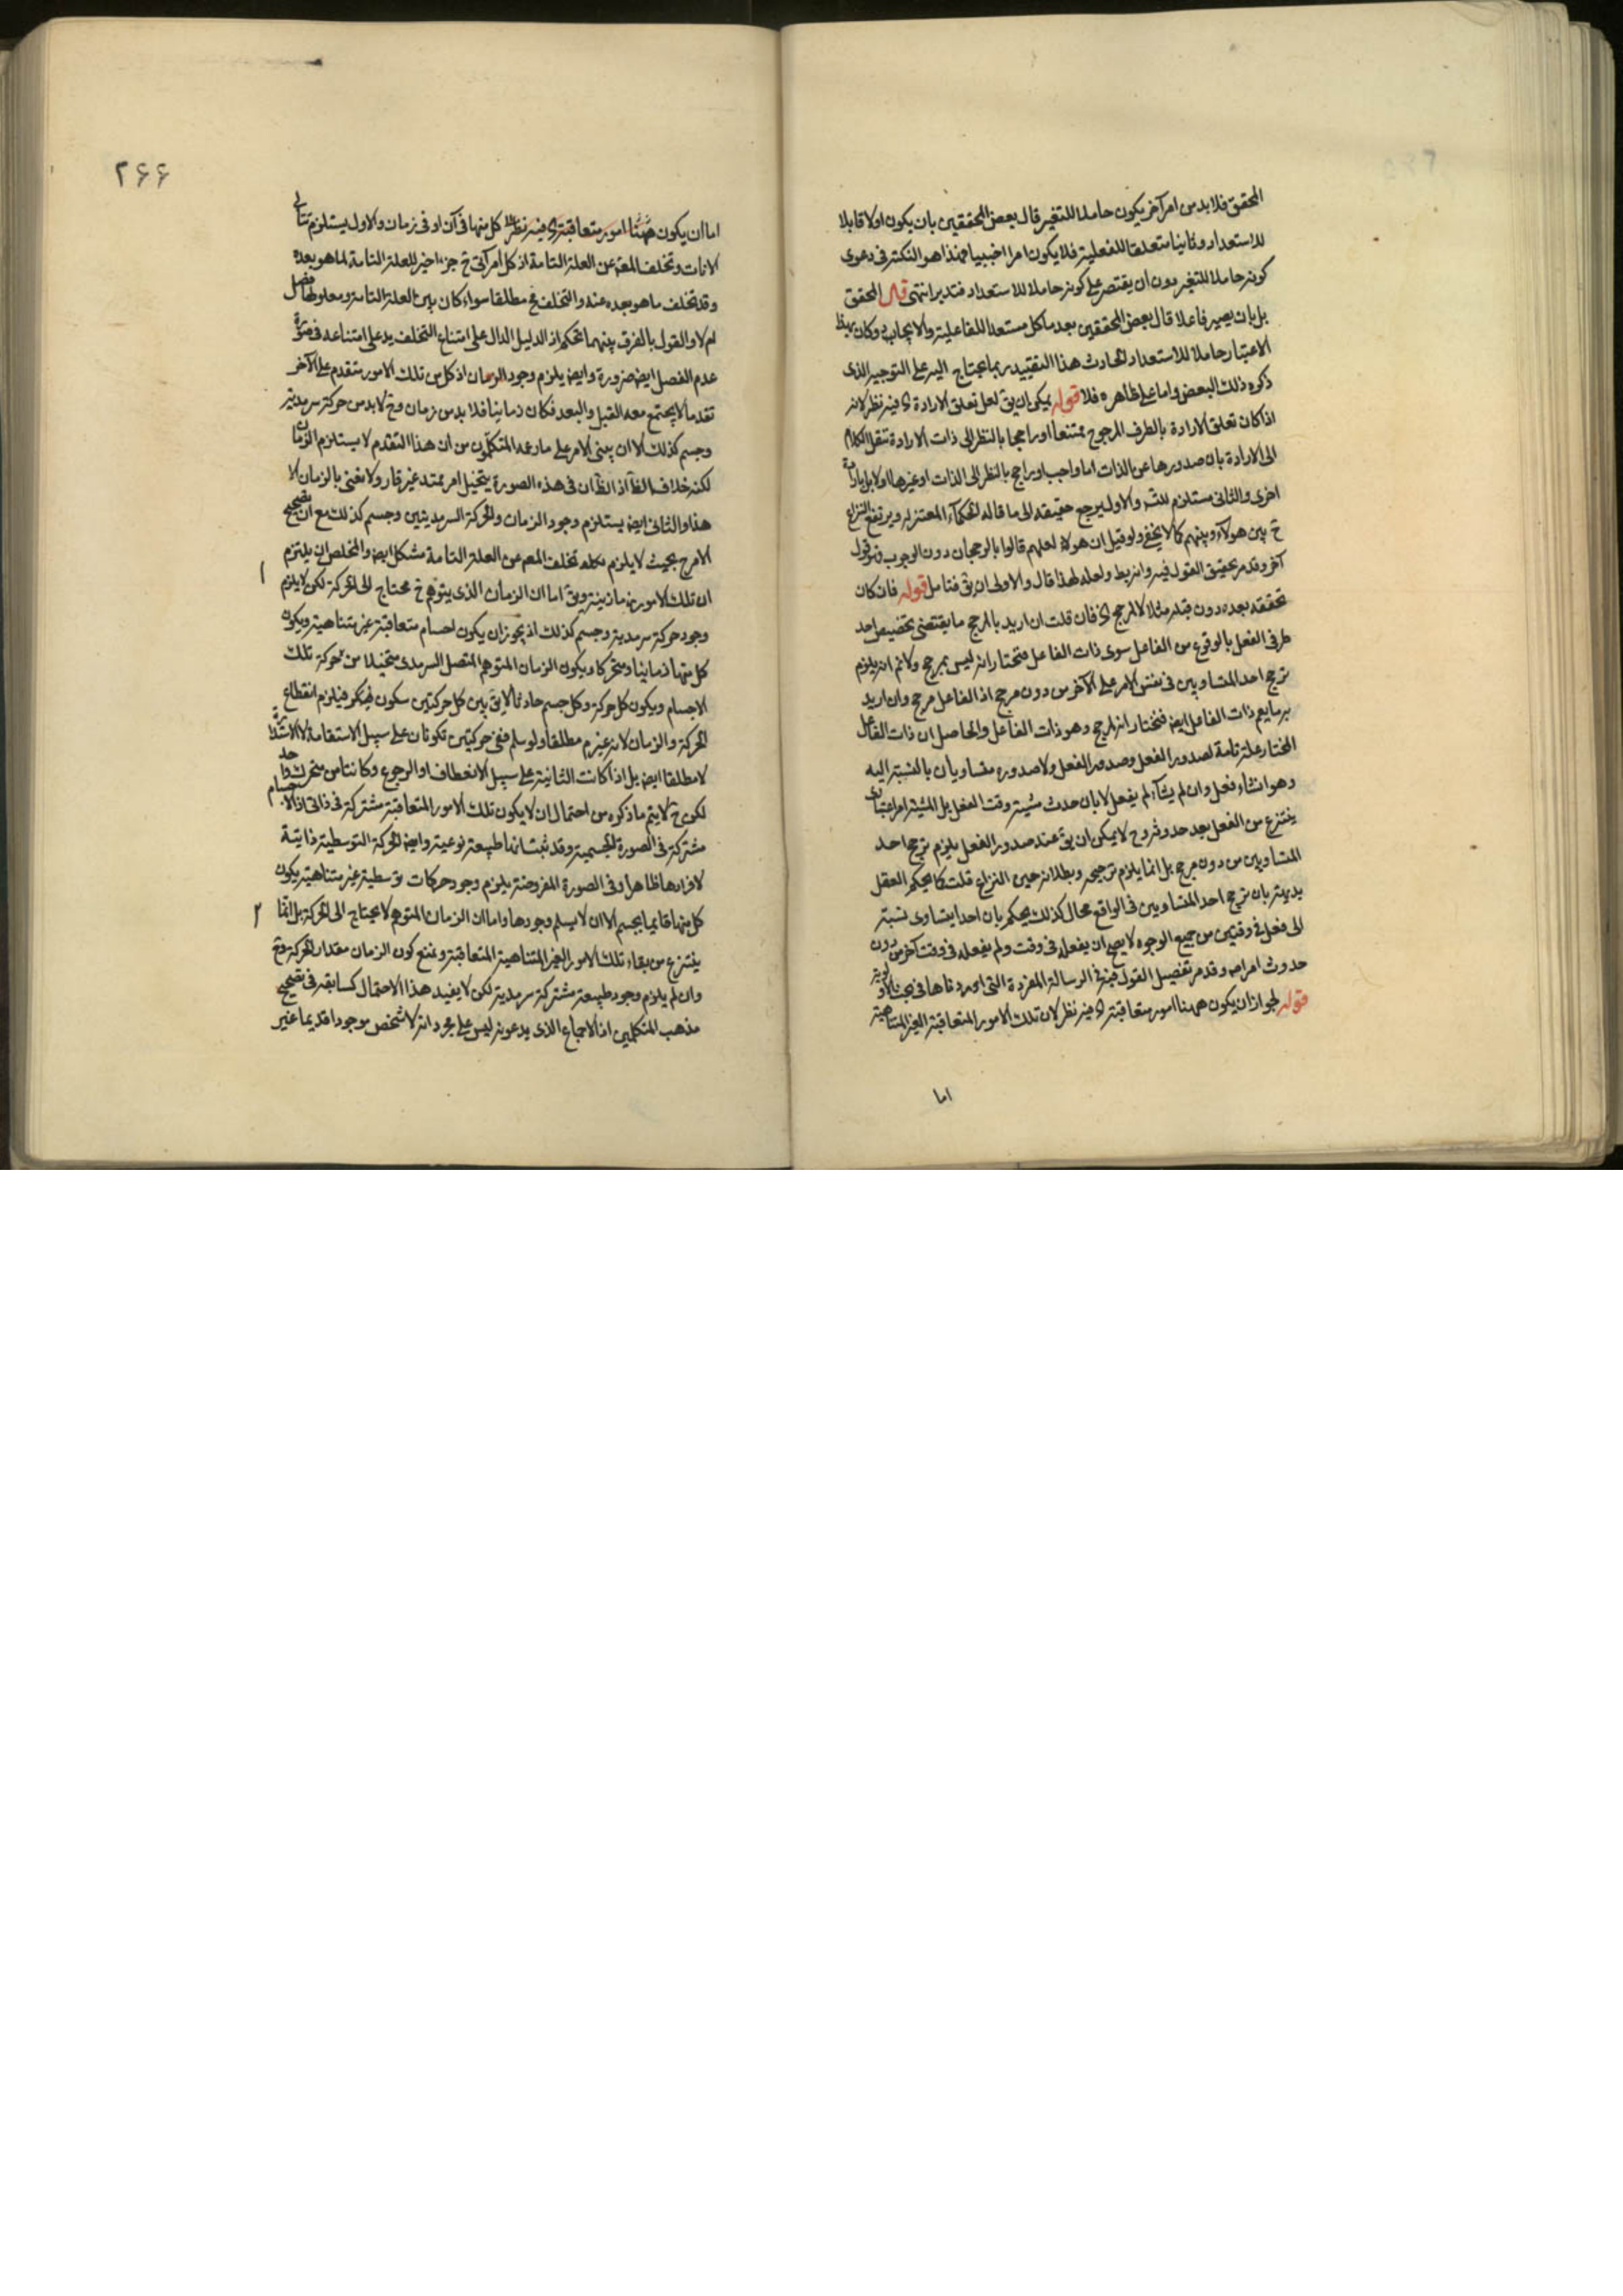 المحقق فلا بد من امر آخر يكون حاملا للتغير قال بعض المحققين بان يكون اولا قابلا
للاستعداد وثانيا متعلقا للفعلية فلا يكون امرا اجنبيا فهذا هو النكتة في دعوى
كونه حاملا للتغير دون ان يقتصر على كونه حاملا للاستعداد فتدبر انتهى قال المحقق
بل بان يصير فاعلا قال بعض المحققين بعد ما كل مستعدا للفاعلية والايجاب وكان بهذا
الاعتبار حاملا للاستعداد الحادث هذا التقييد ربما يحتاج اليه على التوجيه الذى
ذكره ذلك البعض واما على ظاهره فلا قوله يمكن ان يق لعل تعلق الارادة اى فيه نظر لانه
اذا كان تعلق الارادة بالطرف المرجوح ممتنعا او راجحا بالنظر الى ذات الارادة تنقل الكلام
الى الارادة بان صدورها عن الذات اما واجب او راجح بالنظر الى الذات او غيرها او لا بل بارادة
اخرى والثانى مستلزم للتس والاول يرجع حقيقته الى ما قاله الحكمآء المعتزله ويرتفع النزاع
ح بين هولآء وبينهم كما لا يخفى ولو قيل ان هولاء لعلهم قالوا بالرجحان دون الوجوب فهو قول
آخر وقد مر تحقيق القول فيه وانه يط ولعله لهذا قال والاولى ان يق فتامل قوله فان كان
تحققه بعده دون قبله مثلا لا لمرجح اى فان قلت ان اريد بالمرجح ما يقتضى تخصيص احد
طرفى الفعل بالوقوع من الفاعل سوى ذات الفاعل فنختار انه ليس بمرجح ولانم انه يلزم
ترجح احد المتساويين فى نفس الامر على الآخر من دون مرجح اذ الفاعل مرجح وان اريد
به ما يعم ذات الفاعل ايضا فنختار انه لمرجح وهو ذات الفاعل والحاصل ان ذات الفاعل
المختار علة تامة لصدور الفعل وصدور الفعل ولا صدوره متساويان بالنسبة اليه
وهو ان شاء فعل وان لم يشآء لم يفعل لا بان حدث مشية وقت الفعل بل المشية امر اعتبارى
ينتزع من الفعل بعد حدوثه وح لا يمكن ان يق عند صدور الفعل يلزم ترجح احد
المتساويين من دون مرجح بل انما يلزم ترجيحه وبطلانه حين النزاع قلت كما يحكم العقل
بديهة بان ترجح احد المتساويين فى الواقع محال كذلك يحكم بان احدا يتساوى نسبته
الى فعل فى وقتين من جميع الوجوه لا يصح ان يفعله فى وقت ولم يفعله فى وقت آخر من دون
حدوث امر اصلا وقد مر تفصيل القول فيه فى الرسالة المفردة التى اوردناها فى بحث الاولوية
قوله لجواز ان يكون ههنا امور متعاقبة اى فيه نظر لان تلك الامور المتعاقبة الغير المتناهية
اما
٢٦٦
اما ان يكون ههنا امور متعاقبة اى فيه نظر كل منها فى آن او فى زمان والاول يستلزم تتالى
الانات وتخلف المعلول عن العلة التامة اذ كل امر آنى ح جزء اخير للعلة التامة لما هو بعده
وقد تخلف ما هو بعده عنه والتخلف مح مطلقا سواء كان بين العلة التامة ومعلولها فصل
ام لا والقول بالفرق بينهما تحكم اذ الدليل الدال على امتناع التخلف يدل على امتناعه فى صورة
عدم الفصل ايضا ضرورة وايضا يلزم وجود الزمان اذ كل من تلك الامور متقدم على الآخر
تقدما لا يجتمع معه القبل والبعد فكان زمانيا فلا بد من زمان وح لا بد من حركة سرمدية
وجسم كذلك الا ان يبنى الامر على ما زعمه المتكلمون من ان هذا التقدم لا يستلزم الزمان
لكنه خلاف الظ اذ الظ ان فى هذه الصورة يتخيل امر ممتد غير قار ولا نعنى بالزمان الا
هذا والثانى ايضا يستلزم وجود الزمان والحركة السرمديتين وجسم كذلك مع ان تصحيح
الامر ح بحيث لا يلزم تخلف المعلوم عن العلة التامة مشكل ايضا والمخلص ان يلتزم
ان تلك الامور زمانية ويق اما ان الزمان الذى يتوهم ح محتاج الى الحركة لكن لا يلزم
وجود حركة سرمدية وجسم كذلك اذ يجوز ان يكون اجسام متعاقبة غير متناهية ويكون
كل منها زمانيا ومتحركا ويكون الزمان المتوهم المتصل السرمدى متخيلا من حركة تلك
الاجسام ويكون كل حركة وكل جسم حادثا لا يق بين كل حركتين سكون فيلزم انقطاع
الحركة والزمان لانه غير م مطلقا ولو سلم ففى حركتين تكونان على سبيل الاستقامة لا الاستدارة
لا مطلقا ايضا بل اذا كانت الثانية على سبيل الانعطاف او الرجوع وكانتا من متحرك واحد
لكن ح لا يتم ما ذكره من احتمال ان لا يكون تلك الامور المتعاقبة مشتركة فى ذاتى اذ الاجسام
مشتركة فى الصورة الجسمية وقد ثبت انها طبيعة نوعية وايضا الحركة التوسطية ذاتية
لافرادها ظاهرا وفى الصورة المفروضة يلزم وجود حركات توسطية غير متناهية يكون
كل منها قايما بجسم الا ان لا يسلم وجودها واما ان الزمان المتوهم لا يحتاج الى الحركة بل انما
ينتزع من بقاء تلك الامور الغير المتناهية المتعاقبة ونمنع كون الزمان مقدار الحركة وح
وان لم يلزم وجود طبيعة مشتركة سرمدية لكن لا يفيد هذا الاحتمال كسابقه فى تصحيح
مذهب المتكلمين اذ الاجماع الذى يدعونه ليس على مجرد انه لا شخص موجودا قديما غير
١
٢